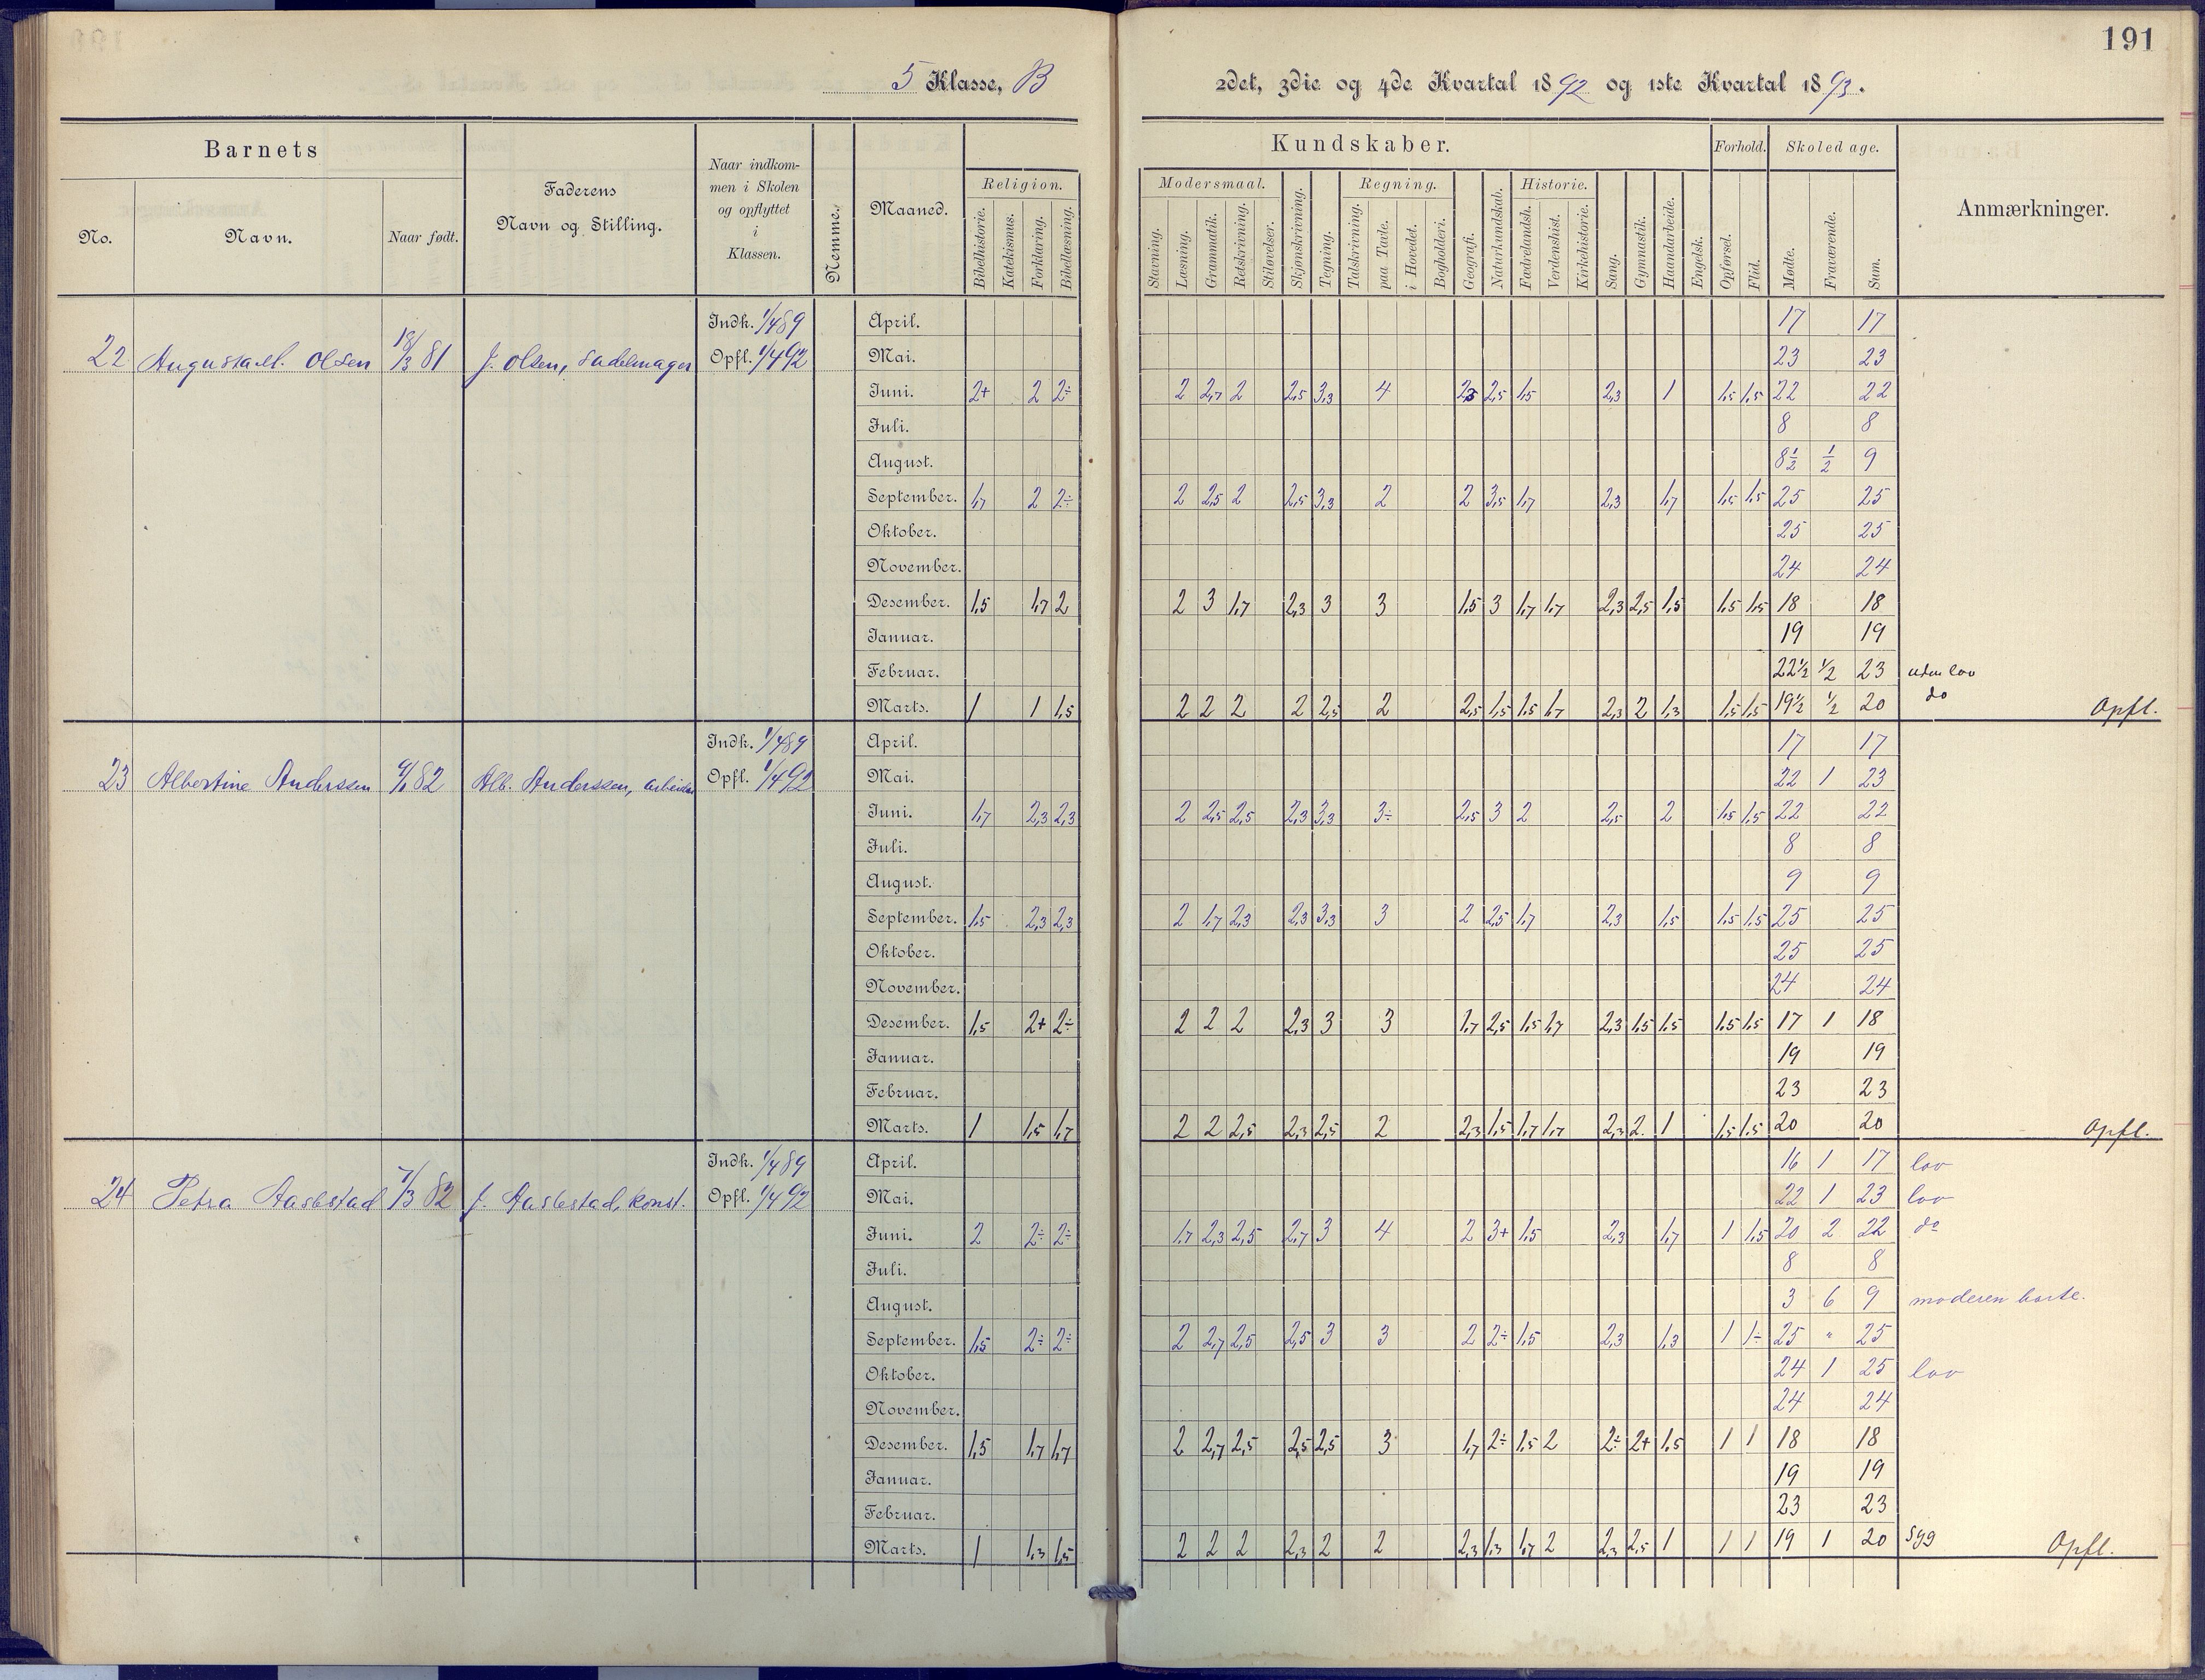 191
5 Klasse, B
2det, 3die og 4de Kvartal 1892 og 1ste Kvartal 1893.
Barnets
No.
Navn.
Naar født.
Faderens
Navn og Stilling.
Naar indkom-
men i Skolen
og opflyttet
i
Klassen.
Nemme.
Maaned.
Religion.
Bibelhistorie.
Katekismus.
Forklaring.
Bibellæsning.
Kundskaber.
Modersmaal.
Stavning.
Læsning.
Grammatik.
Retskrivning.
Stiløvelser.
Skjønskrivning.
Tegning.
Regning.
Talskrivning.
paa Tavle.
i Hovedet.
Bogholderi.
Geografi.
Naturkundskab.
Historie.
Fædrelandsh.
Verdenshist.
Kirkehistorie.
Sang.
Gymnastik.
Haandarbeide.
Engelsk.
Forhold.
Opførsel.
Flid.
Skoledage.
Mødte.
Fraværende.
Sum.
Anmærkninger.
22 Augusta M. Olsen 18/3 81 J. Olsen, Sadelmager Indk. 1/4 89 Opfl. 1/4 92
April. 17 17
Mai. 23 23
Juni. 2+ 2 2÷ 2 2,7 2 2,5 3,3 4 2,3 2,5 1,5 2,3 1 1,5 1,5 22 22
Juli. 8 8
August. 8½ ½ 9
September. 1,7 2 2÷ 2 2,5 2 2,5 3,3 2 2 3,5 1,7 2,3 1,7 1,5 1,5 25 25
Oktober. 25 25
November. 24 24
Desember. 1,5 1,7 2 2 3 1,7 2,3 3 3 1,5 3 1,7 1,7 2,3 2,5 1,5 1,5 1,5 18 18
Januar. 19 19
Februar. 22½ ½ 23 uden lov
Marts. 1 1 1,5 2 2 2 2 2,5 2 2,5 1,5 1,5 1,7 2,3 2 1,3 1,5 1,5 19½ ½ 20 do Opfl.
23 Albertine Anderssen 4/1 82 Alb. Anderssen, arbeider Indk. 1/4 89 Opfl. 1/4 92
April. 17 17
Mai. 22 1 23
Juni. 1,7 2,3 2,3 2 2,5 2,5 2,3 3,3 3÷ 2,5 3 2 2,5 2 1,5 1,5 22 22
Juli. 8 8
August. 9 9
September. 1,5 2,3 2,3 2 1,7 2,3 2,3 3,3 3 2 2,5 1,7 2,3 1,5 1,5 1,5 25 25
Oktober. 25 25
November. 24 24
Desember. 1,5 2+ 2÷ 2 2 2 2,3 3 3 1,7 2,5 1,5 1,7 2,3 1,5 1,5 1,5 1,5 17 1 18
Januar. 19 19
Februar. 23 23
Marts. 1 1,5 1,7 2 2 2,5 2,3 2,5 2 2,3 1,5 1,7 1,7 2,3 2 1 1,5 1,5 20 20 Opfl.
24 Petra Aasbestad 7/3 82 J. Aasbestad, konst. Indk. 1/4 89 Opfl. 1/4 92
April. 16 1 17 lov
Mai. 22 1 23 lov
Juni. 2 2÷ 2÷ 1,7 2,3 2,5 2,7 3 4 2 3+ 1,5 2,3 1,7 1 1,5 20 2 22 do
Juli. 8 8
August. 3 6 9 moderen borte.
September. 1,5 2÷ 2÷ 2 2,7 2,5 2,5 3 3 2 2÷ 1,5 2,3 1,3 1 1÷ 25 " 25
Oktober. 24 1 25 lov
November. 24 24
Desember. 1,5 1,7 1,7 2 2,7 2,5 2,5 2,5 3 1,7 2÷ 1,5 2 2÷ 2+ 1,5 1 1 18 18
Januar. 19 19
Februar. 23 23
Marts. 1 1,3 1,5 2 2 2 2,3 2 2 2,3 1,3 1,7 2 2,3 2,5 1 1 1 19 1 20 syg Opfl.